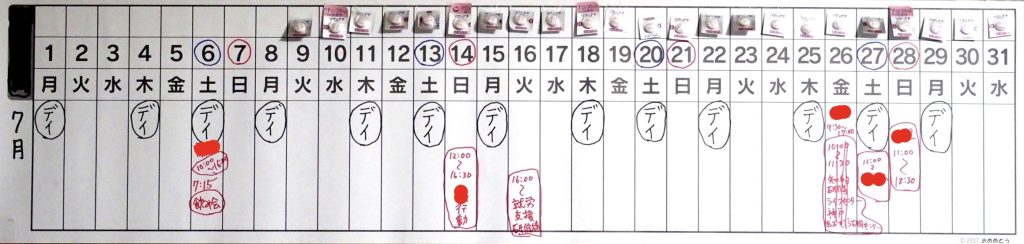 7月
1 2 3 4 5 6 7 8 9 10 11 12 13 14 15 16 17 18 19 20 21 22 23 24 25 26 27 28 29 30 31
月 火 水 木 金 土 日 月 火 水 木 金 土 日 月 火 水 木 金 土 日 月 火 水 木 金 土 日 月 火 水
デイ
デイ
デイ
10:00
～16:00
7:15
飲み会
デイ
デイ
デイ
12:00
～
16:30
行
動
デイ
16:00
～
就労
支援
デイ
デイ
デイ
デイ
9:30～
17:00
10:00
～
11:30
神戸
デイ
11:00
～
デイ
11:00
～
18:30
デイ
© 2007 おめめどう